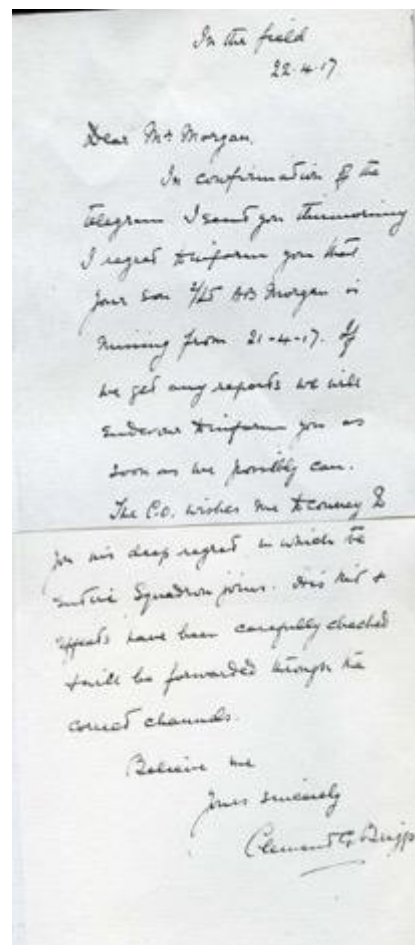 In the field
22-4-17
Dear Mr Morgan.
In confirmation of the
telegram I sent you this morning
I regret to inform you that
your son 2/Lt AB Morgan is
missing from 21-4-17. If
we get any reports we will
endevour to inform you as
soon as we possibly can.
The C.O. wishes me to convey to
you his deep regret in which the
entire Squadron joins. His kit +
effects have been carefully checked
+ will be forwarded through the
correct channels.
Believe me
Yours sincerely
Clement G